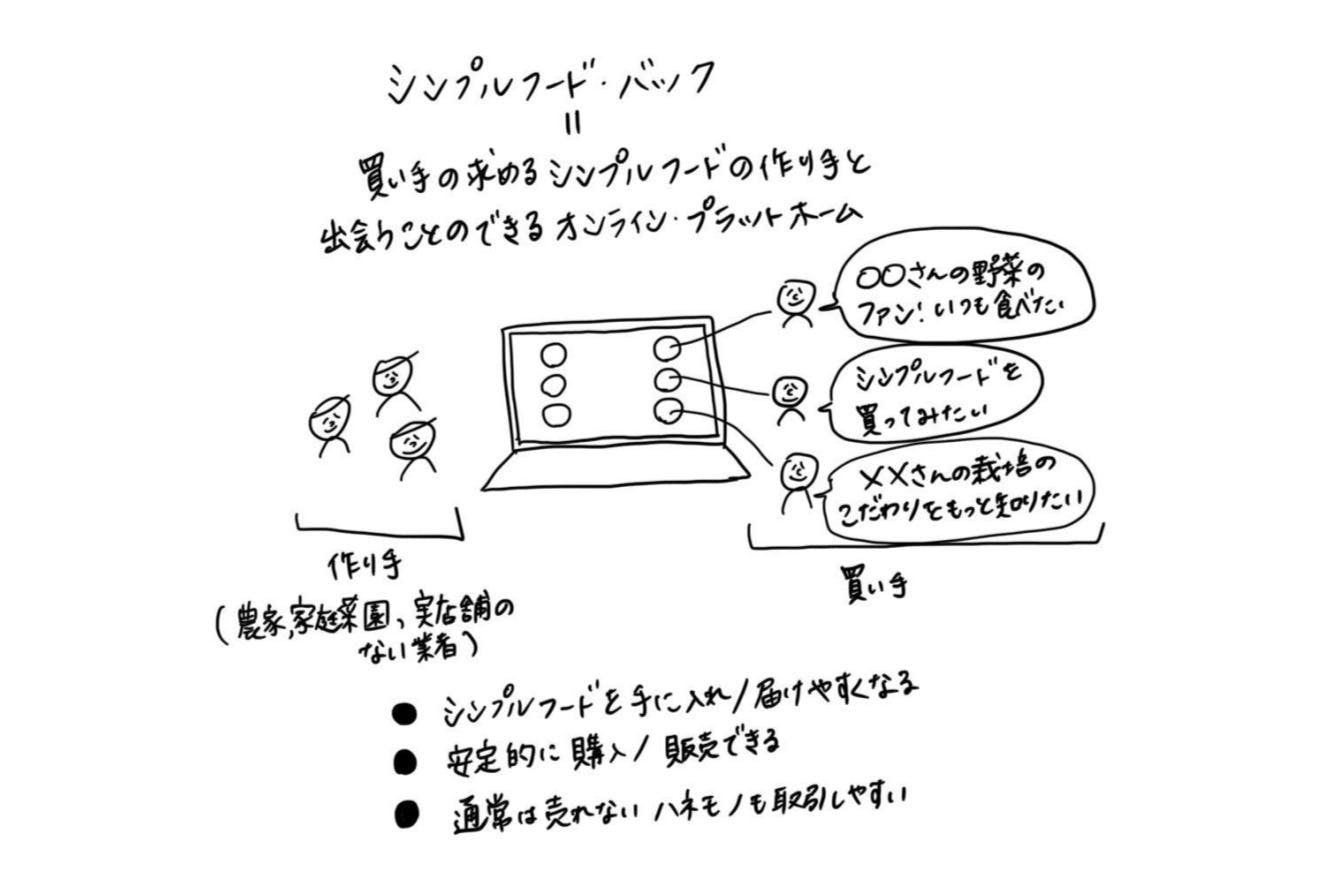 シンプルフード・バック
=
買い手の求めるシンプルフードの作り手と
出会うことのできるオンライン・プラットホーム
〇〇さんの野菜の
ファン!いつも食べたい
シンプルフードを
買ってみたい
××さんの栽培の
こだわりをもっと知りたい
作り手
(農家,家庭菜園、実店舗の
ない業者)
買い手
● シンプルフードを手に入れ/届けやすくなる
● 安定的に購入/販売できる
● 通常は売れないハネモノも取引しやすい